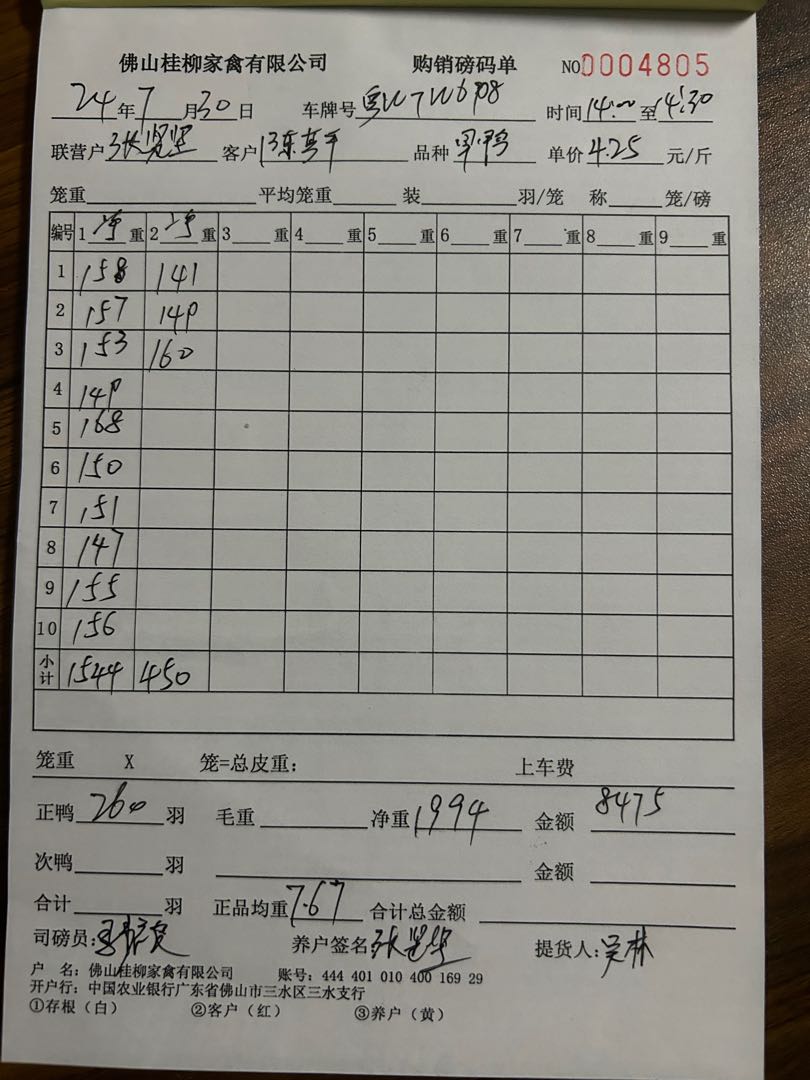 佛山桂柳家禽有限公司 购销磅码单 NO0004805
24年7月30日 车牌号粤W7W698 时间14:00至14:30
联营户张 客户陈 品种 单价4.25元/斤
笼重 平均笼重 装 羽/笼 称 笼/磅
编号 1净重 2净重 3 重 4 重 5 重 6 重 7 重 8 重 9 重
1 158 141
2 157 149
3 153 160
4 149
5 168
6 150
7 151
8 147
9 155
10 156
小计 1544 450
笼重 X 笼=总皮重: 上车费
正鸭260羽 毛重 净重1994 金额8475
次鸭 羽 金额
合计 羽 正品均重7.67 合计总金额
司磅员: 养户签名张 提货人:吴林
户 名: 佛山桂柳家禽有限公司 账号: 444 401 010 400 169 29
开户行: 中国农业银行广东省佛山市三水区三水支行
①存根(白) ②客户(红) ③养户(黄)